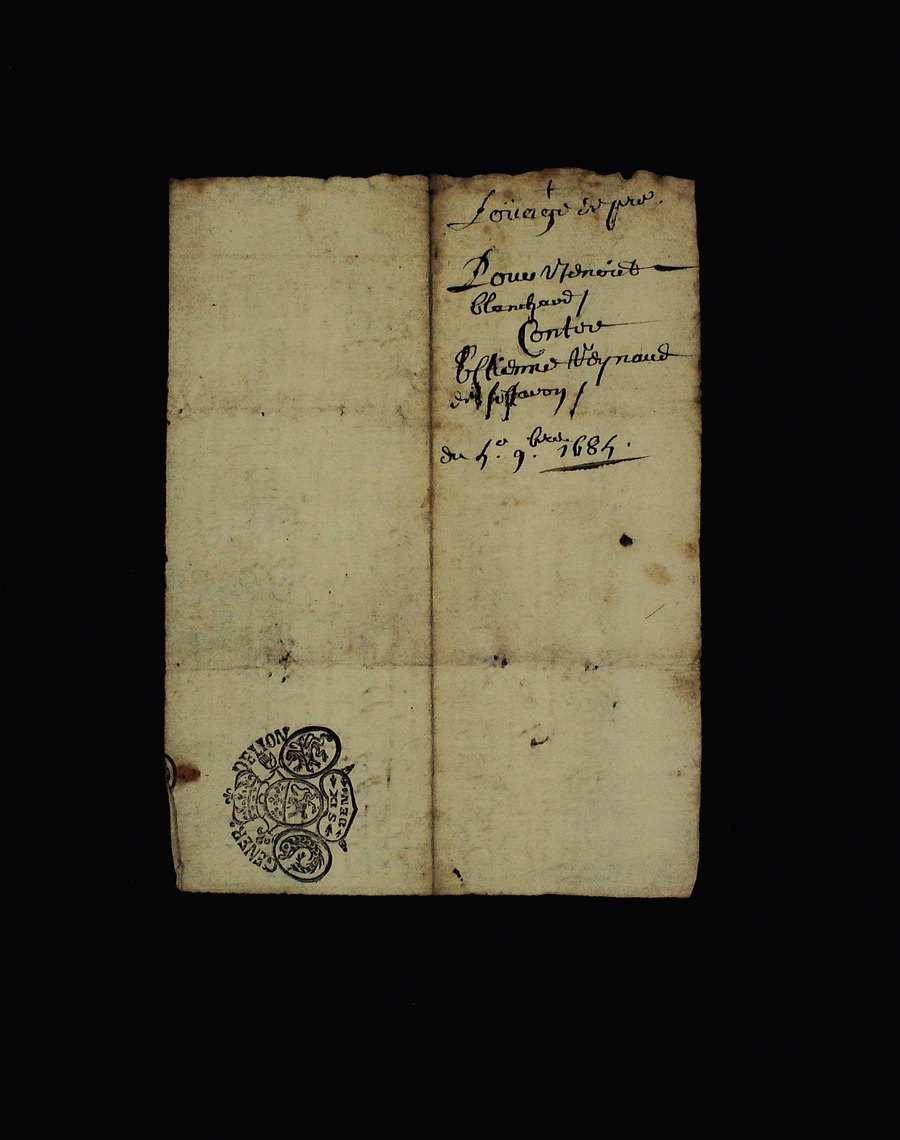 Loüage de pre.
Pour Benoist
blanchard /
Contre
Estienne Reynaud
de
du 5.e 9.bre 1685.
GENER. DE LYON
SIX
DEN.